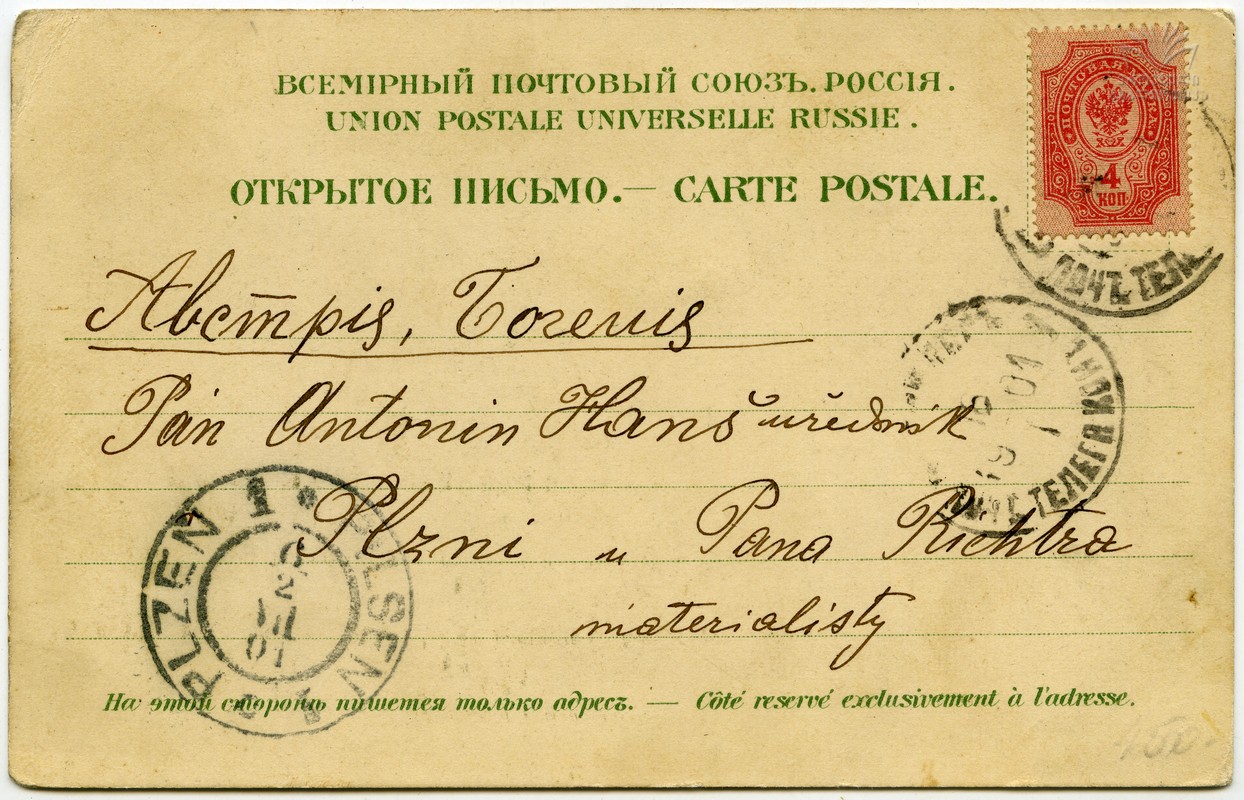 ВСЕМІРНЫЙ ПОЧТОВЫЙ СОЮЗЪ. РОССІЯ.
UNION POSTALE UNIVERSELLE RUSSIE.
ОТКРЫТОЕ ПИСЬМО.— CARTE POSTALE.
ПОЧТОВАЯ МАРКА
4
КОП
ПОЧТ. ТЕЛ
Австрія, Богемія
Pán Antonin Hanš uředník
Plzni u Pana Richtra
materialisty
19 01
ПОЧТ. ТЕЛЕГР
PLZEN 1 PILSEN 1
VII
01
На этой сторонѣ пишется только адресъ. — Côté reservé exclusivement à l'adresse.